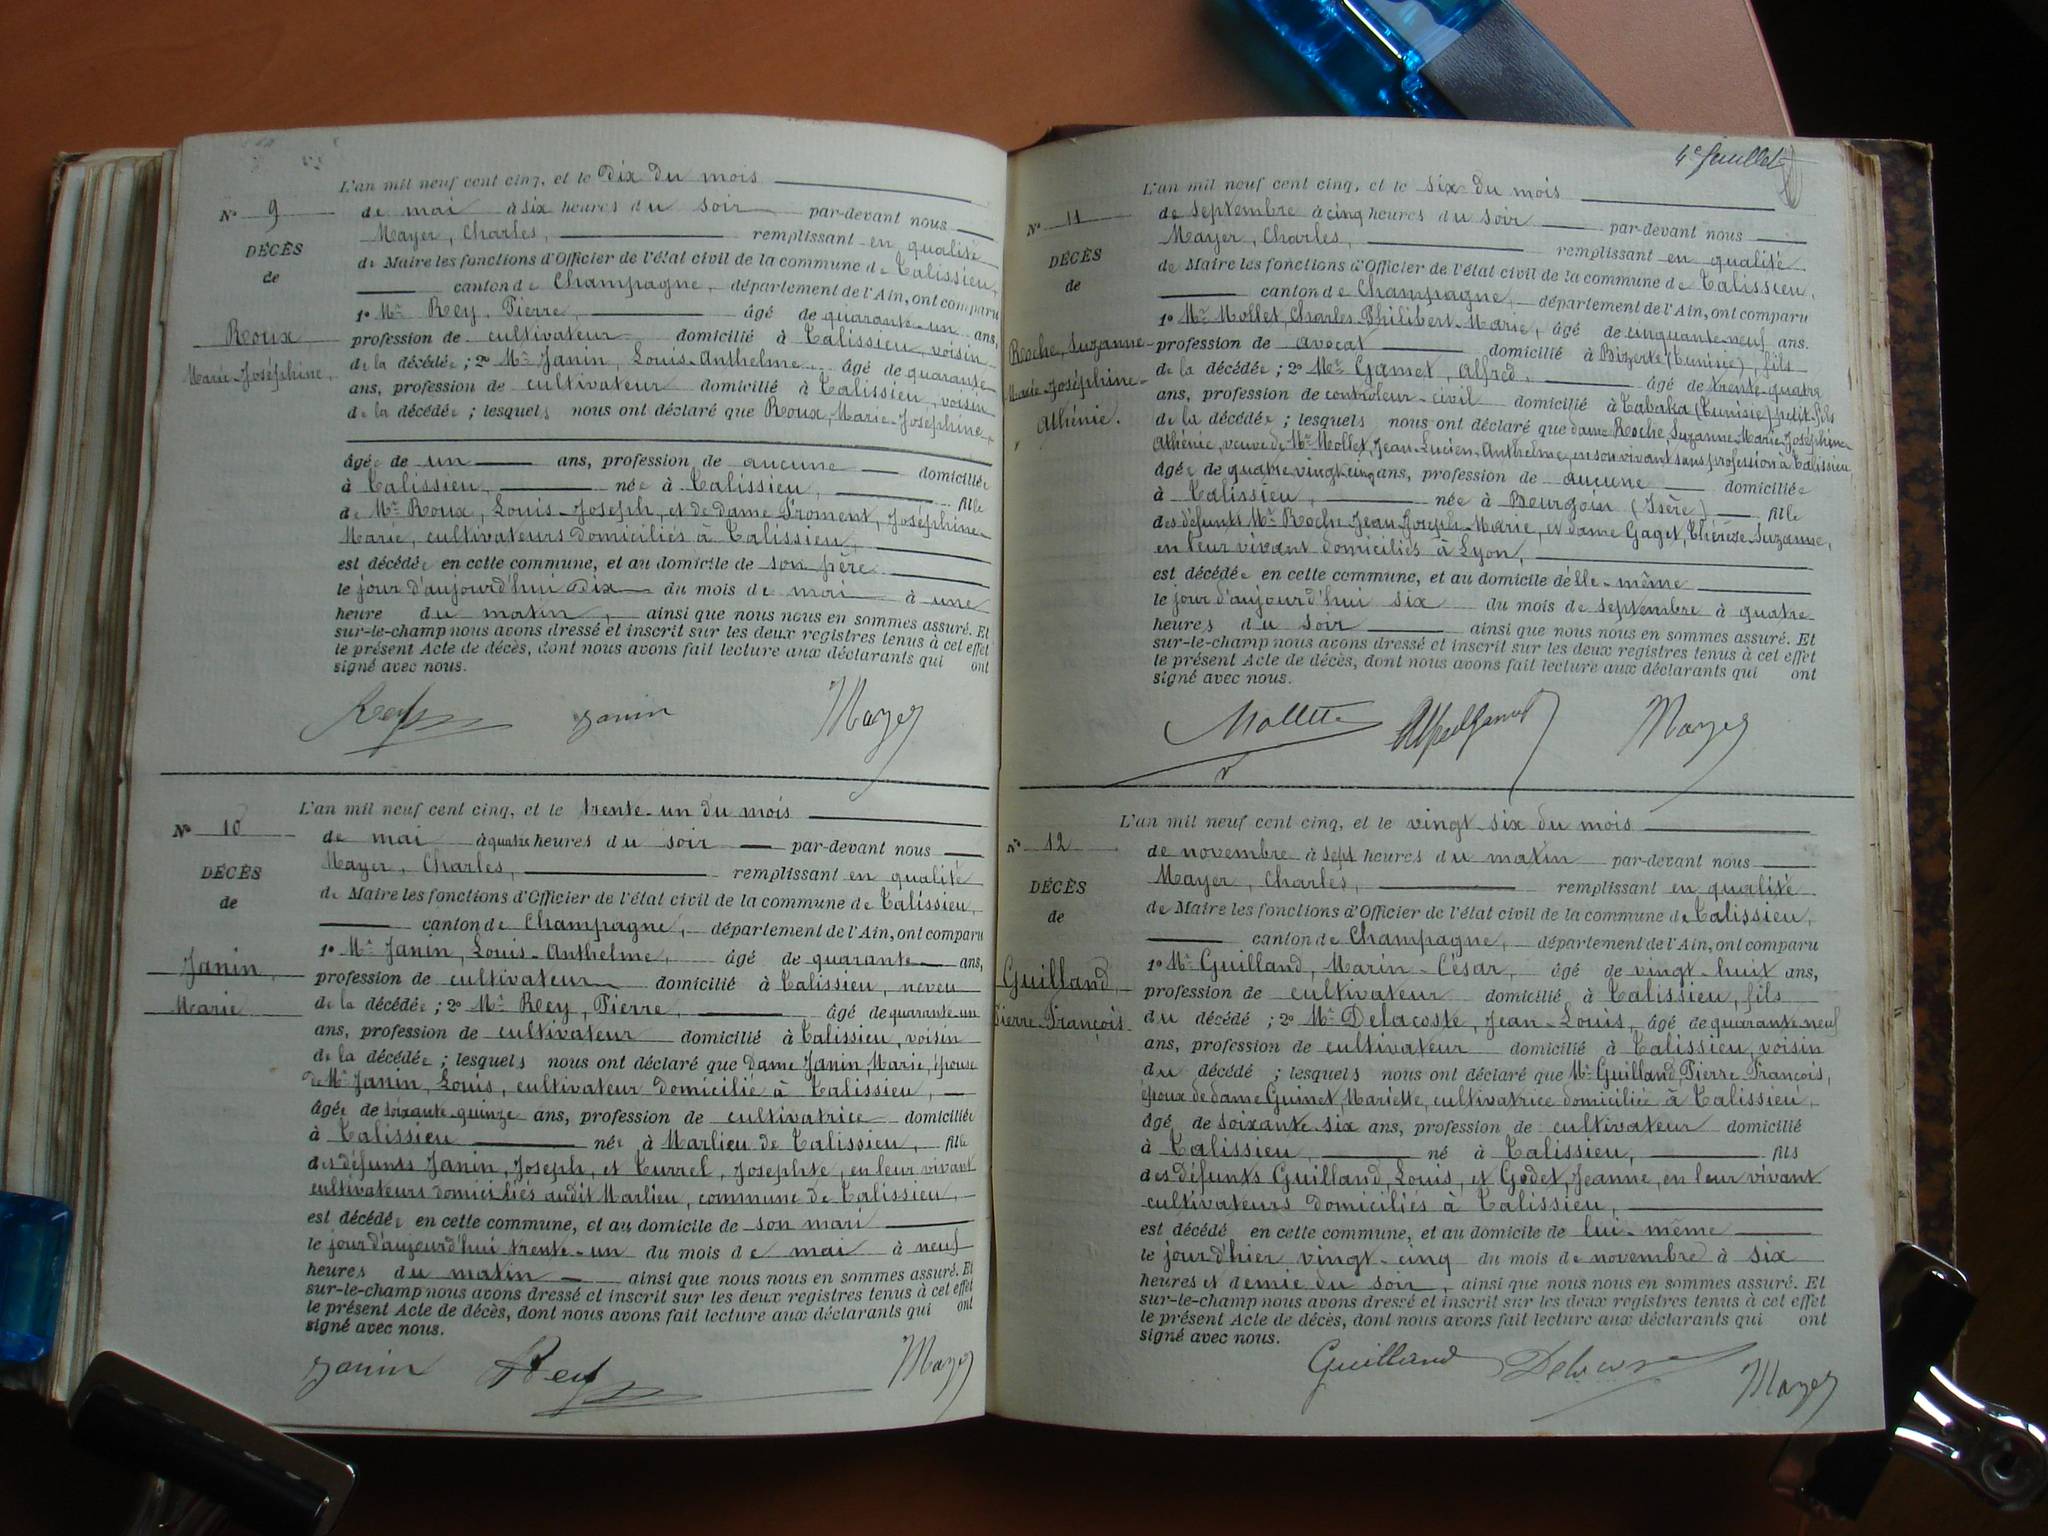 L'an mil neuf cent cinq, et le dix du mois
N° 9
de mai à six heures du soir par-devant nous
Mayer, Charles, remplissant en qualité
DÉCÈS
de Maire les fonctions d'Officier de l'état civil de la commune de Talissieu,
de
canton de Champagne, département de l'Ain, ont comparu
1° Mr Rey, Pierre, âgé de quarante-un ans,
Roux,
profession de cultivateur domicilié à Talissieu, voisin
Marie-Joséphine.
de la décédée ; 2° Mr Janin, Louis-Anthelme âgé de quarante
ans, profession de cultivateur domicilié à Talissieu, voisin
de la décédée ; lesquels nous ont déclaré que Roux, Marie-Joséphine,
âgée de un ans, profession de aucune domiciliée
à Talissieu, née à Talissieu, fille
de Mr Roux, Louis-Joseph, et de dame Froment, Joséphine-
Marie, cultivateurs domiciliés à Talissieu,
est décédée en cette commune, et au domicile de son père
le jour d'aujourd'hui dix du mois de mai à une
heure du matin, ainsi que nous nous en sommes assuré. Et
sur-le-champ nous avons dressé et inscrit sur les deux registres tenus à cet effet
le présent Acte de décès, dont nous avons fait lecture aux déclarants qui ont
signé avec nous.
Rey Janin Mayer
L'an mil neuf cent cinq, et le trente-un du mois
N° 10
de mai à quatre heures du soir par-devant nous
Mayer, Charles, remplissant en qualité
DÉCÈS
de Maire les fonctions d'Officier de l'état civil de la commune de Talissieu,
de
canton de Champagne, département de l'Ain, ont comparu
1° Mr Janin, Louis-Anthelme, âgé de quarante ans,
Janin,
profession de cultivateur domicilié à Talissieu, neveu
Marie
de la décédée ; 2° Mr Rey, Pierre, âgé de quarante-un
ans, profession de cultivateur domicilié à Talissieu, voisin
de la décédée ; lesquels nous ont déclaré que dame Janin, Marie, épouse
de Mr Janin, Louis, cultivateur domicilié à Talissieu,
âgée de soixante-quinze ans, profession de cultivatrice domiciliée
à Talissieu née à Marlieu de Talissieu, fille
des défunts Janin, Joseph, et Turrel, Josephte, en leur vivant
cultivateurs domiciliés audit Marlieu, commune de Talissieu,
est décédée en cette commune, et au domicile de son mari
le jour d'aujourd'hui trente-un du mois de mai à neuf
heures du matin ainsi que nous nous en sommes assuré. Et
sur-le-champ nous avons dressé et inscrit sur les deux registres tenus à cet effet
le présent Acte de décès, dont nous avons fait lecture aux déclarants qui ont
signé avec nous.
Janin Rey Mayer
4e feuillet
L'an mil neuf cent cinq, et le six du mois
N° 11
de septembre à cinq heures du soir par-devant nous
Mayer, Charles, remplissant en qualité
DÉCÈS
de Maire les fonctions d'Officier de l'état civil de la commune de Talissieu,
de
canton de Champagne, département de l'Ain, ont comparu
1° Mr Mollet, Charles Philibert-Marie, âgé de cinquante-neuf ans.
Roche, Suzanne-
profession de avocat domicilié à Bizerte (Tunisie), fils
Marie-Joséphine-
de la décédée ; 2° Mr Gamet, Alfred, âgé de trente-quatre
ans, profession de contrôleur-civil domicilié à Tabaka (Tunisie) petit-fils
Athénie.
de la décédée ; lesquels nous ont déclaré que dame Roche, Suzanne-Marie-Joséphine-
Athénie, veuve de Mr Mollet, Jean-Lucien-Anthelme, en son vivant sans profession à Talissieu,
âgée de quatre vingt cinq ans, profession de aucune domiciliée
à Talissieu, née à Bourgoin (Isère) fille
des défunts Mr Roche Jean-Joseph-Marie, et dame Gaget, Thérèse-Suzanne,
en leur vivant domiciliés à Lyon,
est décédée en cette commune, et au domicile d'elle-même
le jour d'aujourd'hui six du mois de septembre à quatre
heures du soir ainsi que nous nous en sommes assuré. Et
sur-le-champ nous avons dressé et inscrit sur les deux registres tenus à cet effet
le présent Acte de décès, dont nous avons fait lecture aux déclarants qui ont
signé avec nous.
Mollet Alfred Gamet Mayer
L'an mil neuf cent cinq, et le vingt-six du mois
N° 12
de novembre à sept heures du matin par-devant nous
Mayer, Charles, remplissant en qualité
DÉCÈS
de Maire les fonctions d'Officier de l'état civil de la commune de Talissieu,
de
canton de Champagne, département de l'Ain, ont comparu
1° Mr Guilland, Marin-César, âgé de vingt-huit ans,
Guilland,
profession de cultivateur domicilié à Talissieu, fils
Pierre-François.
du décédé ; 2° Mr Delacoste, Jean-Louis, âgé de quarante-neuf
ans, profession de cultivateur domicilié à Talissieu, voisin
du décédé ; lesquels nous ont déclaré que Mr Guilland, Pierre-François,
époux de dame Guinet, Mariette, cultivatrice domiciliée à Talissieu,
âgé de soixante-six ans, profession de cultivateur domicilié
à Talissieu, né à Talissieu, fils
des défunts Guilland, Louis, et Godet, Jeanne, en leur vivant
cultivateurs domiciliés à Talissieu,
est décédé en cette commune, et au domicile de lui-même
le jour d'hier vingt-cinq du mois de novembre à six
heures et demie du soir, ainsi que nous nous en sommes assuré. Et
sur-le-champ nous avons dressé et inscrit sur les deux registres tenus à cet effet
le présent Acte de décès, dont nous avons fait lecture aux déclarants qui ont
signé avec nous.
Guilland Delacoste Mayer